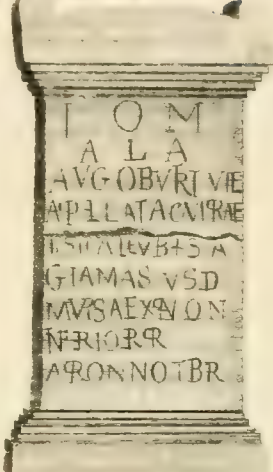 I O M
A L A
AVG OBVRTVIE
APPLLATACVIPRAE
GIAMAS VSD
MVPSAEXPVON
NFRIORPR
APONNOTBR